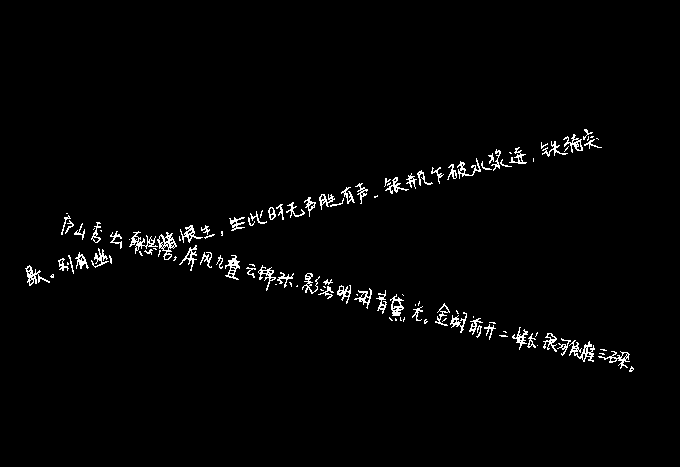 歇。别有幽愁暗恨生,生此时无声胜有声.银瓶乍破水浆迸,铁骑突
庐山秀出南斗傍,屏风九叠云锦张.影落明湖青黛光。金阙前开二峰长银河倒挂三石梁。